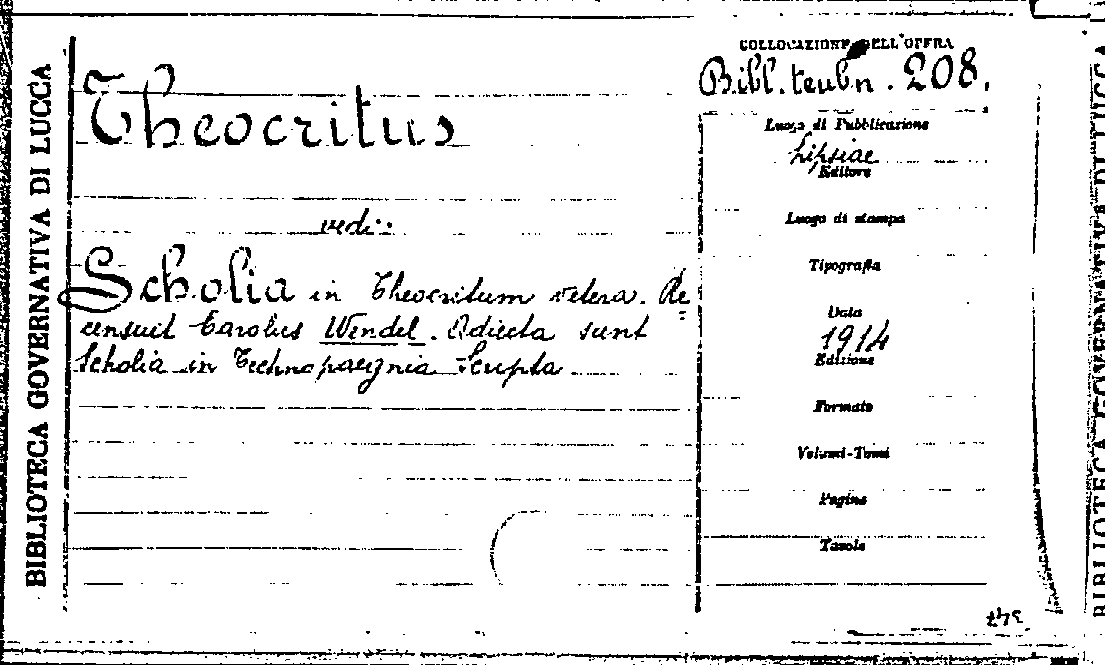 BIBLIOTECA GOVERNATIVA DI LUCCA
COLLOCAZIONE DELL'OPERA
Bibl. teubn. 208.
Theocritus
vedi:
Scholia in Theocritum vetera. Re=
censuit Carolus Wendel. Adiecta sunt
Scholia in Technopaegnia Scripta
Luogo di Pubblicazione
Lipsiae
Editore
Luogo di stampa
Tipografia
Data
1914
Edizione
Formato
Volumi-Tomi
Pagine
Tavole
BIBLIOTECA GOVERNATIVA DI LUCCA